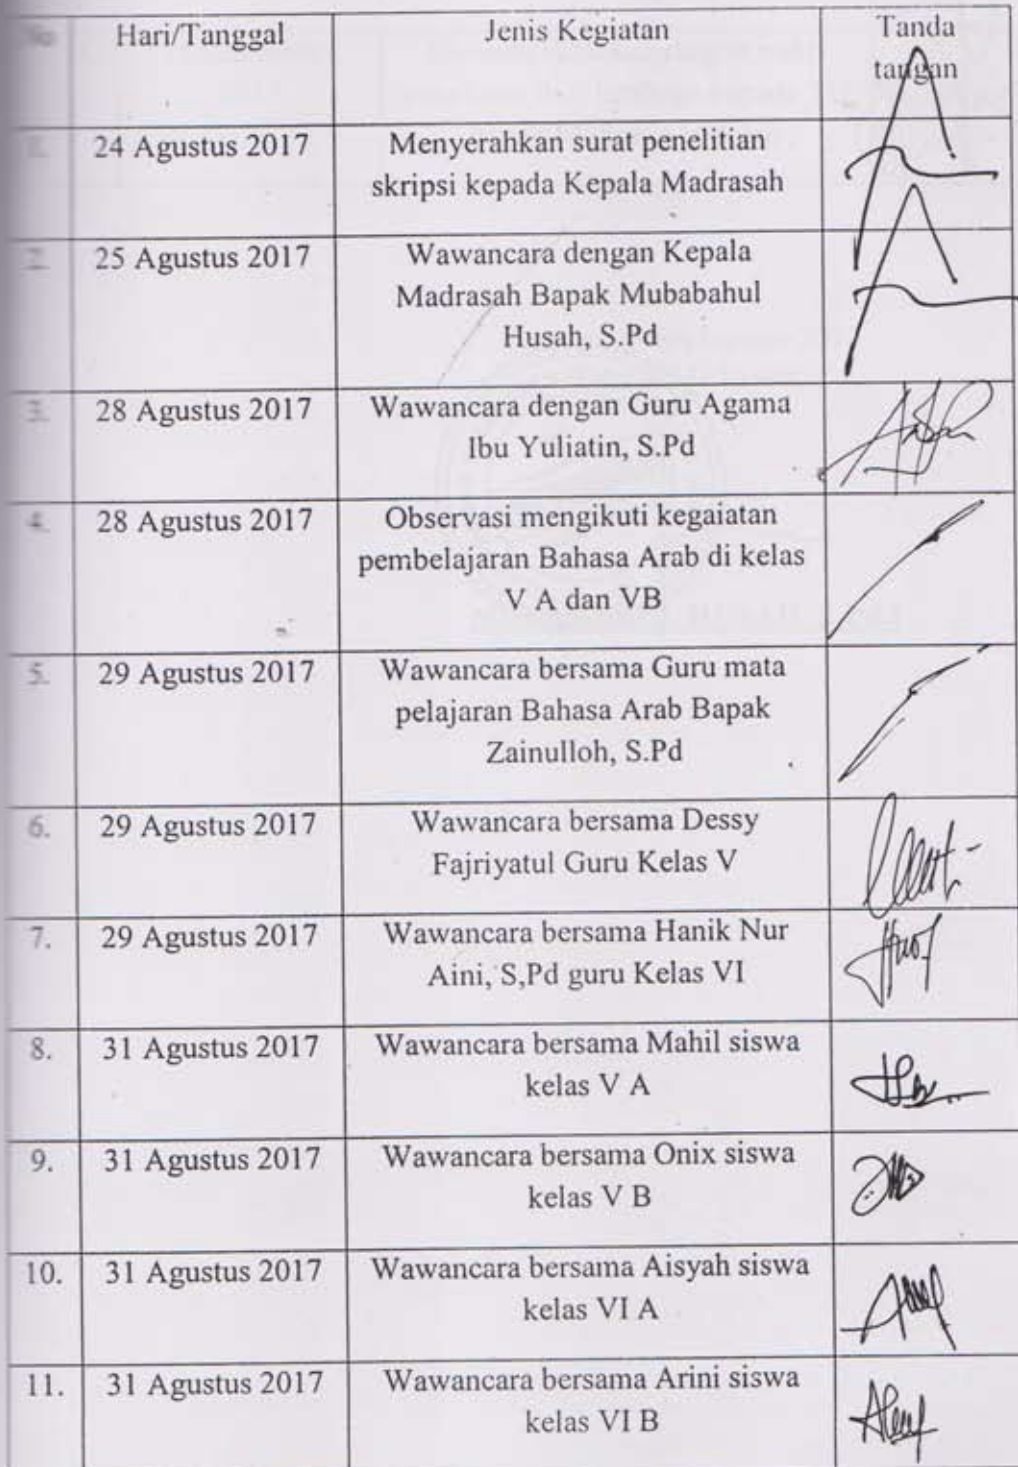 No Hari/Tanggal Jenis Kegiatan Tanda
tangan
1. 24 Agustus 2017 Menyerahkan surat penelitian
skripsi kepada Kepala Madrasah
2. 25 Agustus 2017 Wawancara dengan Kepala
Madrasah Bapak Mubabahul
Husah, S.Pd
3. 28 Agustus 2017 Wawancara dengan Guru Agama
Ibu Yuliatin, S.Pd
4. 28 Agustus 2017 Observasi mengikuti kegaiatan
pembelajaran Bahasa Arab di kelas
V A dan VB
5. 29 Agustus 2017 Wawancara bersama Guru mata
pelajaran Bahasa Arab Bapak
Zainulloh, S.Pd
6. 29 Agustus 2017 Wawancara bersama Dessy
Fajriyatul Guru Kelas V
7. 29 Agustus 2017 Wawancara bersama Hanik Nur
Aini, S,Pd guru Kelas VI
8. 31 Agustus 2017 Wawancara bersama Mahil siswa
kelas V A
9. 31 Agustus 2017 Wawancara bersama Onix siswa
kelas V B
10. 31 Agustus 2017 Wawancara bersama Aisyah siswa
kelas VI A
11. 31 Agustus 2017 Wawancara bersama Arini siswa
kelas VI B